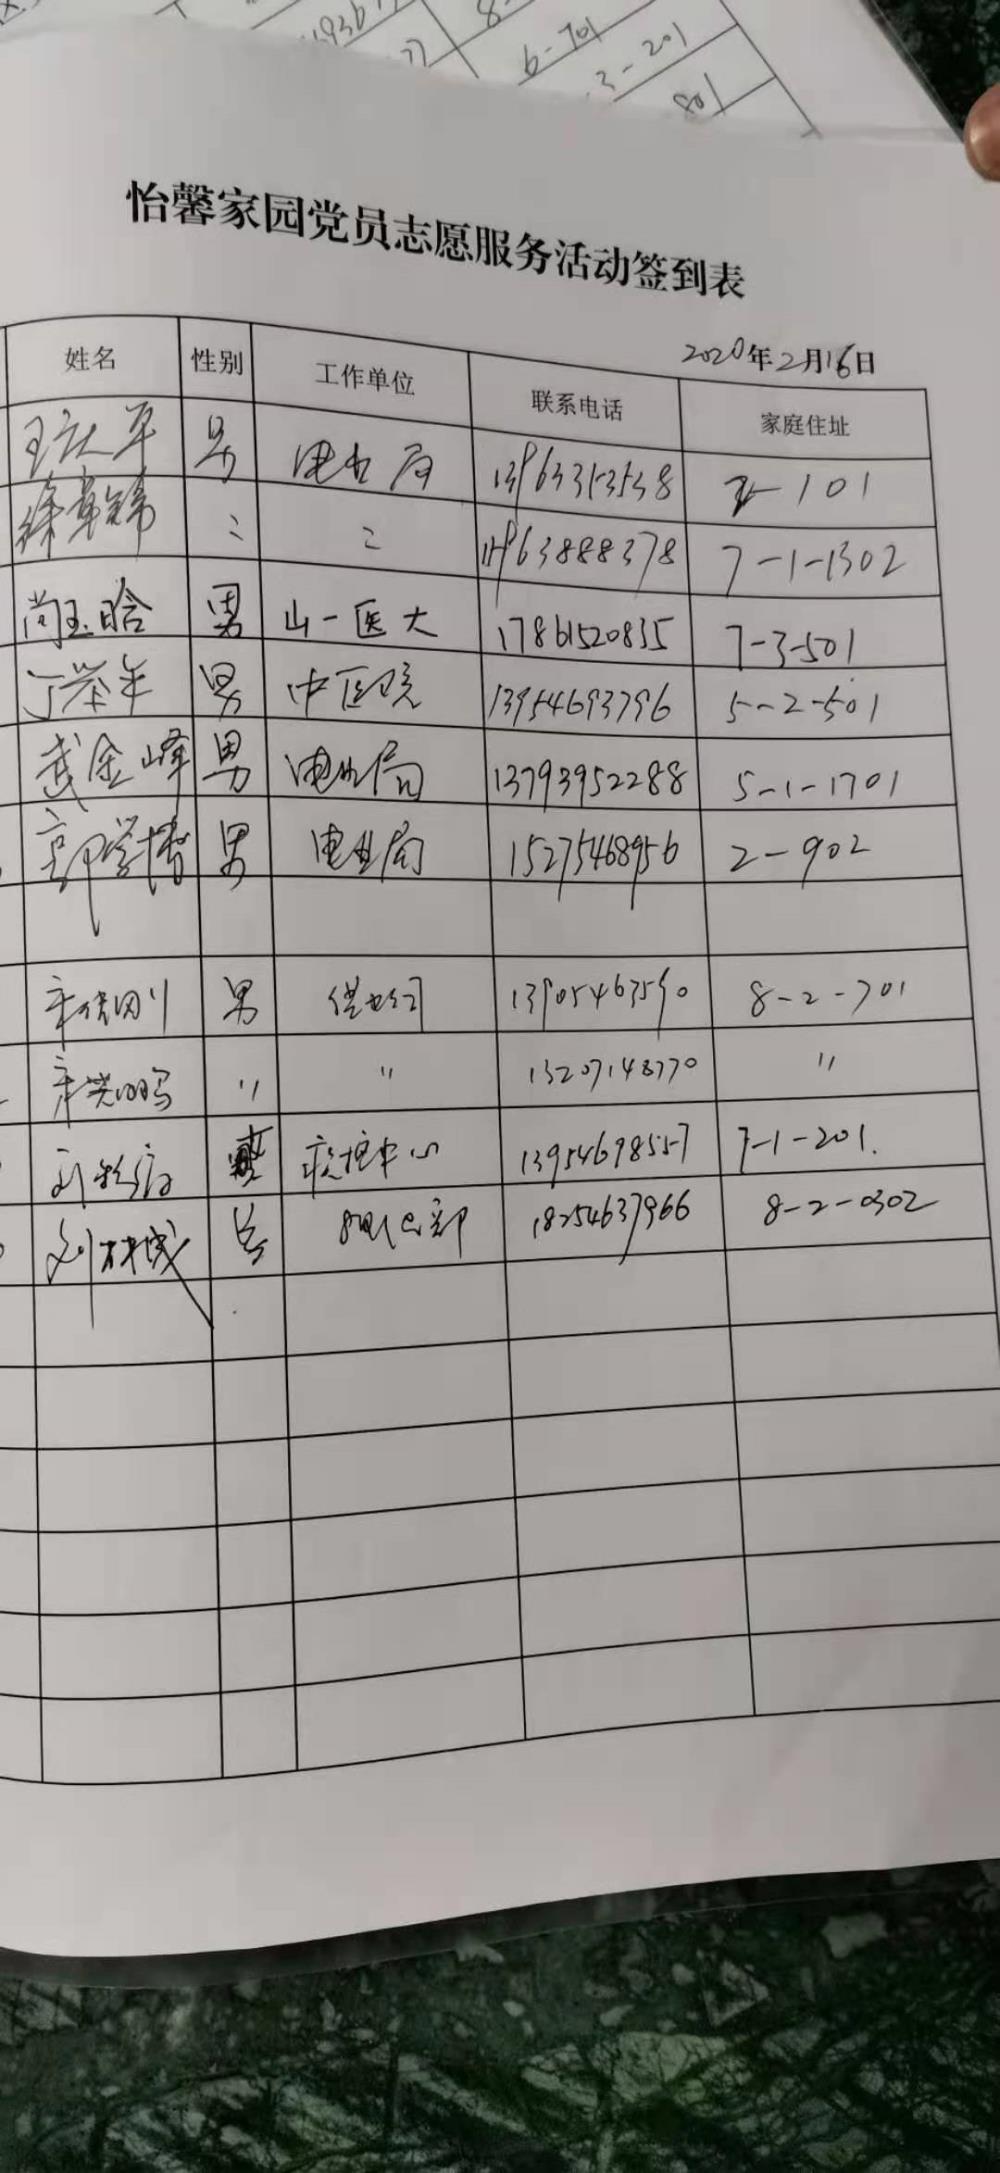 6-701
3-201
801
怡馨家园党员志愿服务活动签到表
2020年2月16日
姓名 性别 工作单位 联系电话 家庭住址
男 101
徐 〃 〃 13963888378 7-1-1302
尚玉晗 男 山一医大 17861520835 7-3-501
丁荣年 男 中医院 13954693796 5-2-501
武金峰 男 电业局 13793952288 5-1-1701
郭学博 男 电业局 15275468956 2-902
男 供电公司 13905463590 8-2-701
〃 〃 13207148770 〃
刘 疾控中心 13954698557 7-1-201.
刘林城 男 18254637966 8-2-0302